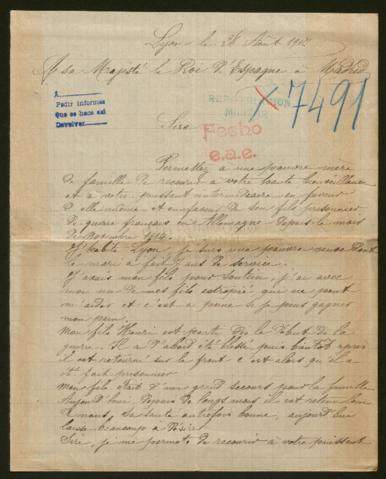 Lyon le 28 Août 1915
A sa Majesté le Roi d'Espagne à Madrid
A
Pedir informes
Que se hace así
Devolver
X 7491
Fecho
e.a.e.
Sire
Permettez à une pauvre mère
de famille de recourir à votre haute bienveillance
et à votre puissant intermédiaire en faveur
d'elle même et en faveur de son fils prisonnier
de guerre français en Allemagne depuis le mois
de Novembre 1914.
J'habite Lyon je suis une pauvre veuve dont
le mari a fait 7 ans de service.
J'avais mon fils pour soutien, j'ai avec
moi un de mes fils estropié qui ne peut
m'aider et c'est à peine si je puis gagner
mon pain.
Mon fils Henri est parti dès le début de la
guerre. Il a d'abord été blessé puis bientôt après
il est retourné sur le front c'est alors qu'il a
été fait prisonnier
Mon fils était d'un grand secours pour la famille
Aujourd'hui, depuis de longs mois il est retenu loin
de nous, sa santé autrefois bonne, aujourd'hui
laisse beaucoup à désirer
Sire, je me permets de recourir à votre puissant